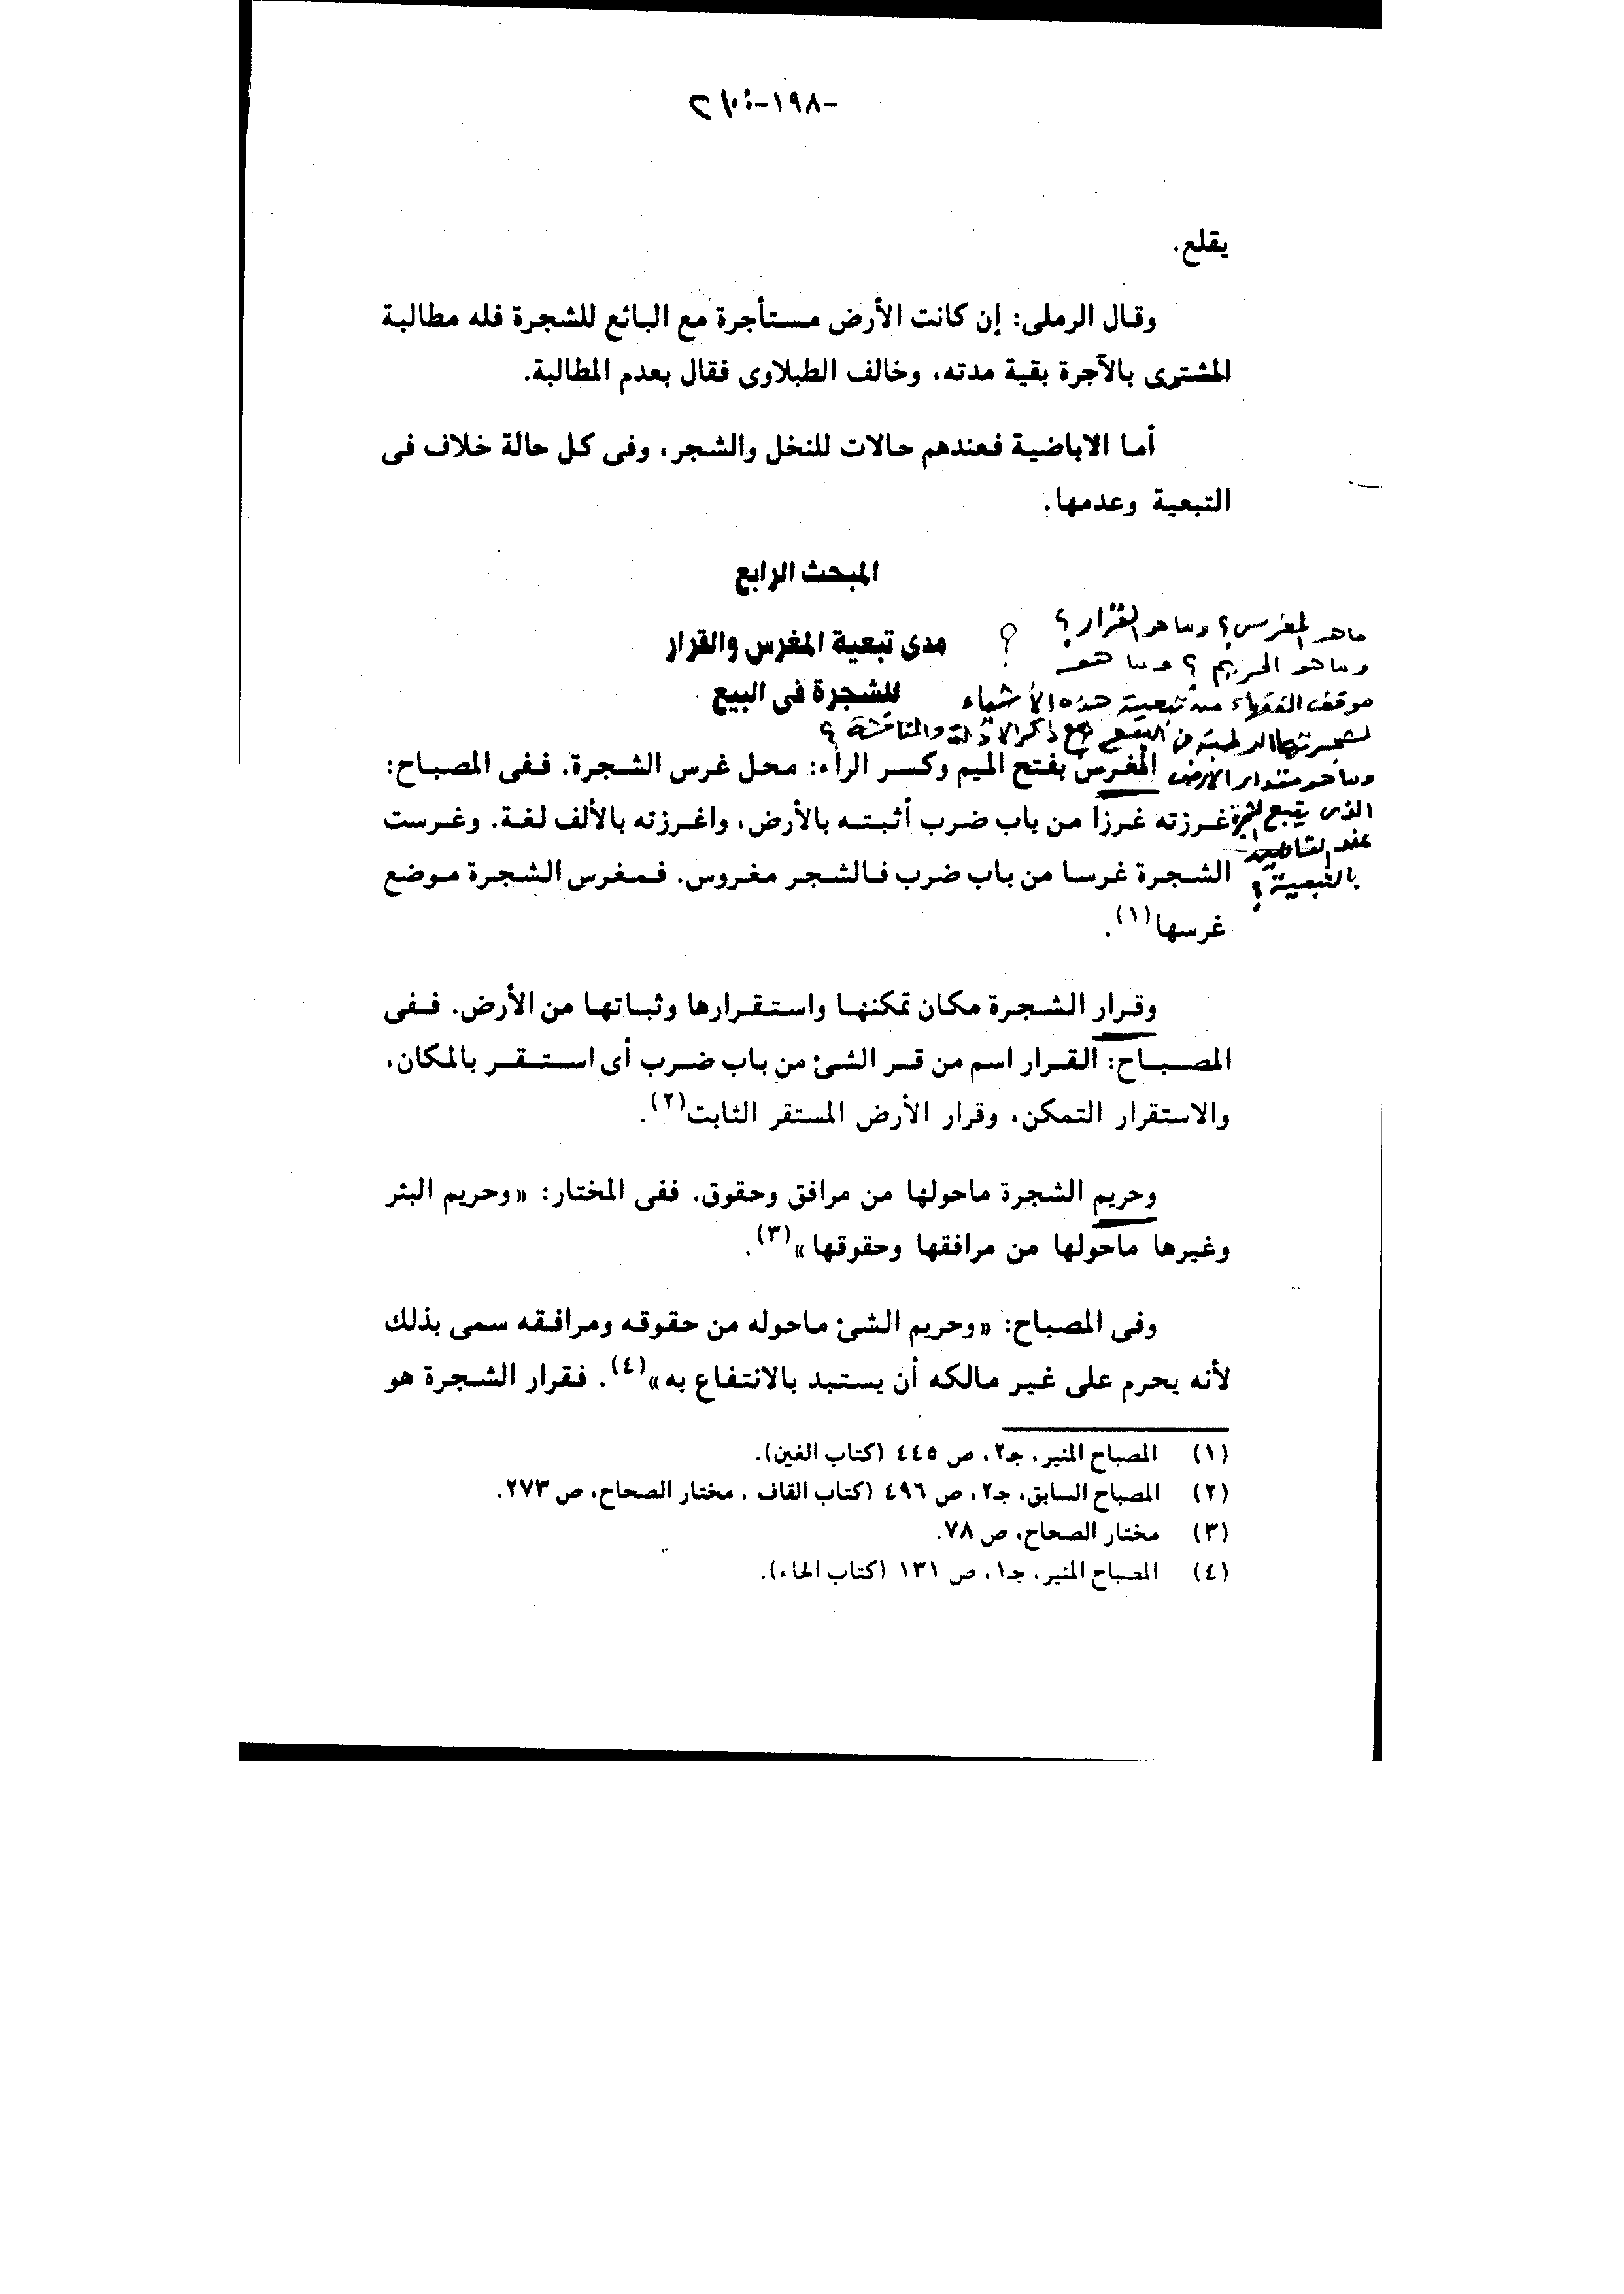 -١٩٨-
يقلع.
وقال الرملى: إن كانت الأرض مستأجرة مع البائع للشجرة فله مطالبة
المشترى بالآجرة بقية مدته، وخالف الطبلاوى فقال بعدم المطالبة.
أما الاباضية فعندهم حالات للنخل والشجر، وفى كل حالة خلاف فى
التبعية وعدمها.
المبحث الرابع
مدى تبعية المغرس والقرار
للشجرة فى البيع
؟
ماهو المغرس؟ وما هو القرار؟
وما هو الحريم؟ وما هو
موقف الفقهاء من تبعية هذه الأشياء
مع ذكر الأدلة والمناقشة؟
وما هو مقدار الأرض
الذى يتبع الشجرة
عند القائلين
بالتبعية؟
المغرس بفتح الميم وكسر الراء: محل غرس الشجرة. ففى المصباح:
غرزته غرزا من باب ضرب أثبته بالأرض، واغرزته بالألف لغة. وغرست
الشجرة غرسا من باب ضرب فالشجر مغروس. فمغرس الشجرة موضع
غرسها(١).
وقرار الشجرة مكان تمكنها واستقرارها وثباتها من الأرض. ففى
المصباح: القرار اسم من قر الشئ من باب ضرب أى استقر بالمكان،
والاستقرار التمكن، وقرار الأرض المستقر الثابت(٢).
وحريم الشجرة ماحولها من مرافق وحقوق. ففى المختار: «وحريم البئر
وغيرها ماحولها من مرافقها وحقوقها»(٣).
وفى المصباح: «وحريم الشئ ماحوله من حقوقه ومرافقه سمى بذلك
لأنه يحرم على غير مالكه أن يستبد بالانتفاع به»(٤). فقرار الشجرة هو
(١) المصباح المنير، جـ٢، ص ٤٤٥ (كتاب الغين).
(٢) المصباح السابق، جـ٢، ص ٤٩٦ (كتاب القاف ، مختار الصحاح، ص ٢٧٣.
(٣) مختار الصحاح، ص ٧٨.
(٤) المصباح المنير، جـ١، ص ١٣١ (كتاب الحاء).